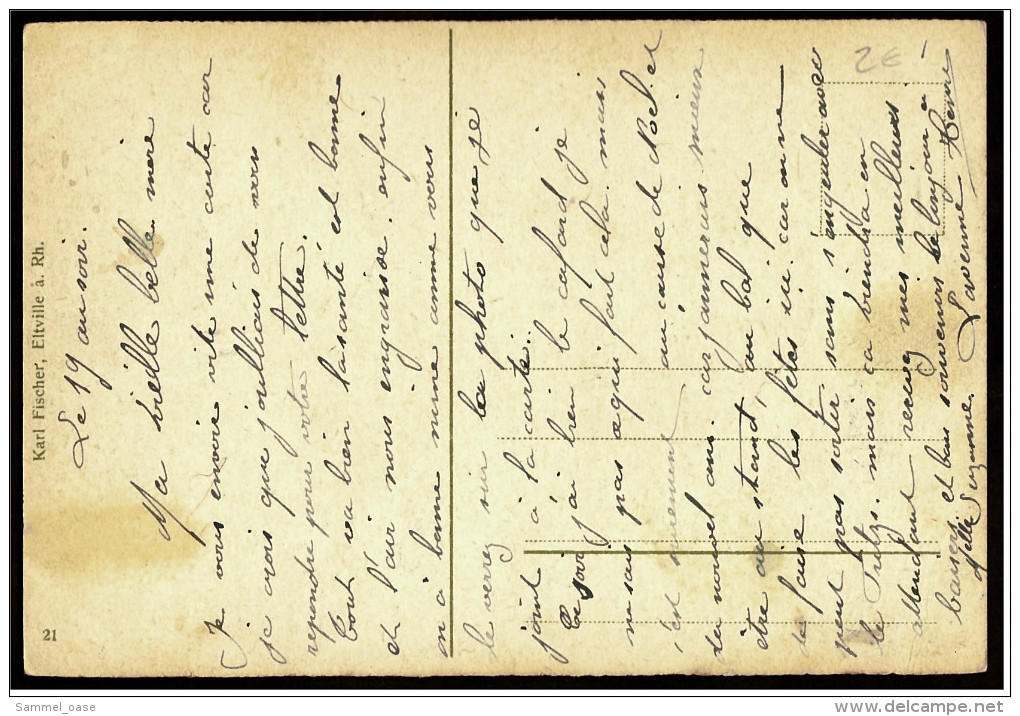 Karl Fischer, Eltville à. Rh.
21
Le 19 au soir.
Ma vieille belle mere
Je vous envoie vite une carte car
je crois que j'oulliais de vous
repondre pour votre lettre.
Tout va bien la santé est bonne
et l'air nous engraisse. enfin
on à bonne mine comme vous
le verrez sur la photo que je
joint à la carte.
Ce soir j'ai bien le cafard je
ne sais pas a qui faut cela. mais
c'est surement au cause de Noel. et
du nouvel an. car j'aimerais mieux
être au stand, au bal que
de faire les fêtes ici. car on ne
peut pas sortir sans s'engueuler avec
le Fritz. mais ça viendra en
attendant recevez mes meilleurs
baisers et bons souvenirs le bonjour a
Melle Suzanne. Lavenne Pierre
2€ -
Sammel_oase
www.delcampe.net